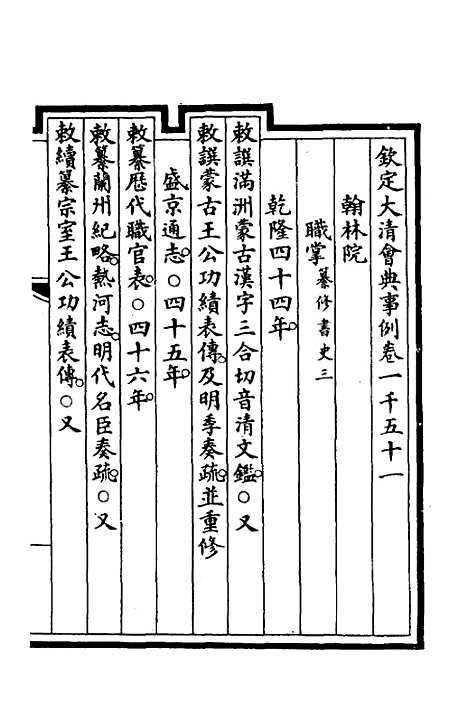 欽定大清會典事例卷一千五十一
翰林院
職掌纂修書史三
乾隆四十四年。
敕譔滿洲蒙古漢字三合切音清文鑑。○又
敕譔蒙古王公功績表傳。及明季奏疏。並重修
盛京通志。○四十五年。
敕纂歷代職官表。○四十六年。
敕纂蘭州紀略。熱河志。明代名臣奏疏。○又
敕續纂宗室王公功績表傳。○又